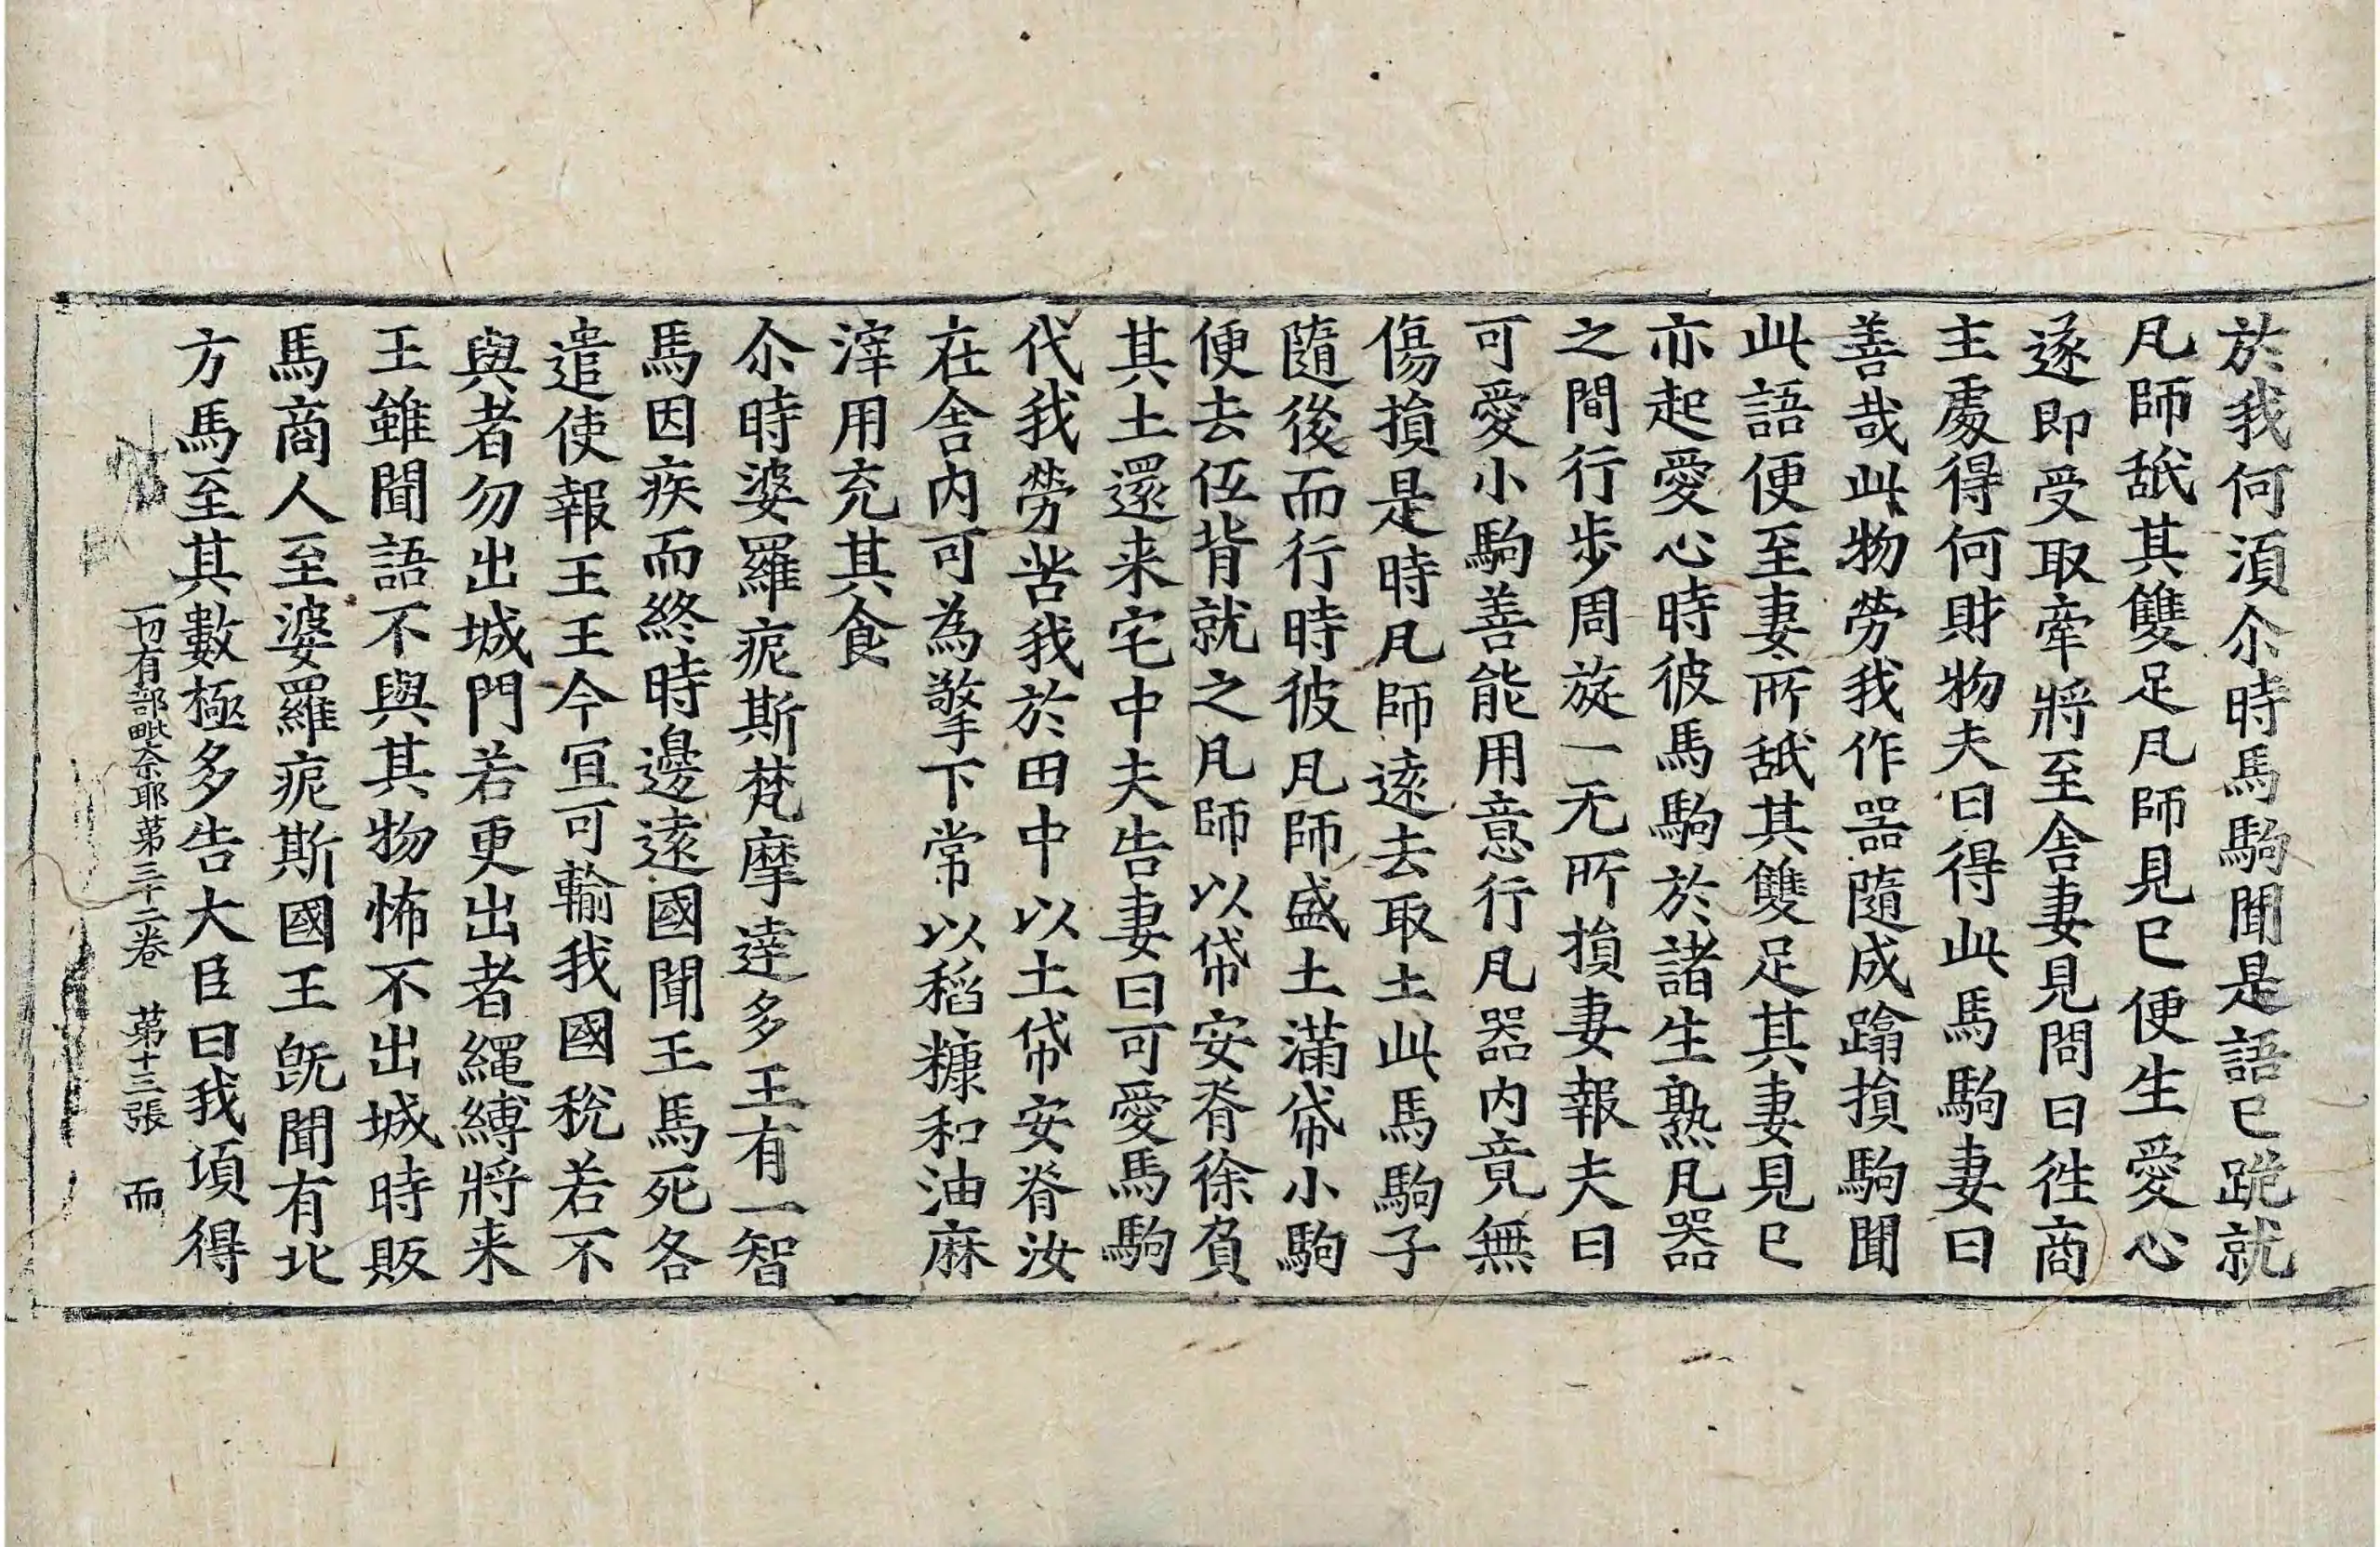 於我何湏尒時馬駒聞是語已跪就
凡師舐其雙足凡師見已便生愛心
遂即受取牽將至舍妻見問曰徃商
主處得何財物夫曰得此馬駒妻曰
善哉此物勞我作器隨成蹹損駒聞
此語便至妻所舐其雙足其妻見已
亦起愛心時彼馬駒於諸生熟凡器
之間行步周旋一无所損妻報夫曰
可愛小駒善能用意行凡器内竟無
傷損是時凡師遠去取土此馬駒子
隨後而行時彼凡師盛土滿帒小駒
便去伍背就之凡師以帒安脊徐負
其土還来宅中夫告妻曰可愛馬駒
代我勞苦我於田中以土帒安脊汝
在舍内可為擎下常以稻糠和油麻
滓用充其食
尒時婆羅痆斯梵摩達多王有一智
馬因疾而終時邊遠國聞王馬死各
遣使報王王今冝可輸我國稅若不
與者勿出城門若更出者繩縛將来
王雖聞語不與其物怖不出城時販
馬商人至婆羅痆斯國王旣聞有北
方馬至其數極多告大臣曰我湏得
一切有部毗奈耶苐三十二卷 苐十三張 而